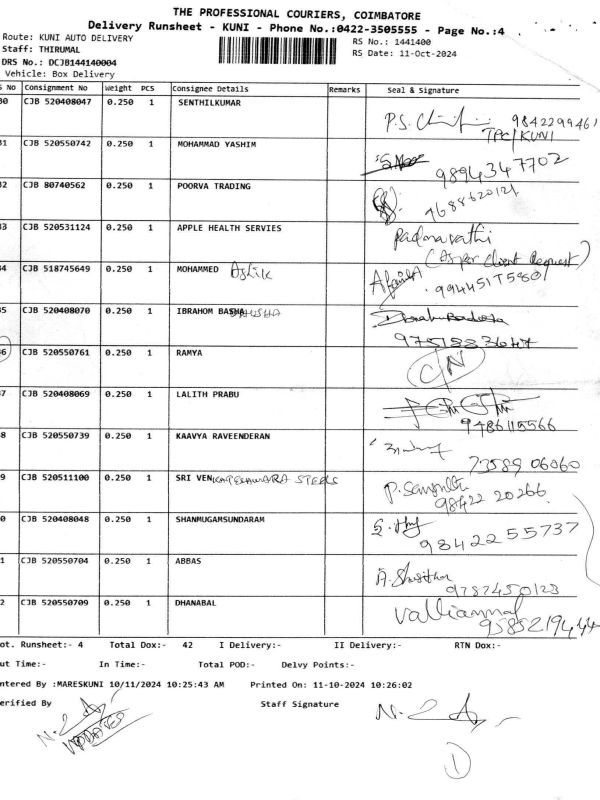 THE PROFESSIONAL COURIERS, COIMBATORE
Delivery Runsheet - KUNI - Phone No.:0422-3505555 - Page No.:4
Route: KUNI AUTO DELIVERY
RS No.: 1441400
Staff: THIRUMAL
RS Date: 11-Oct-2024
DRS No.: DCJB144140004
Vehicle: Box Delivery
S No Consignment No Weight PCS Consignee Details Remarks Seal & Signature
30 CJB 520408047 0.250 1 SENTHILKUMAR P.S. 9842299461
TPC/KUNI
31 CJB 520550742 0.250 1 MOHAMMAD YASHIM
9894347702
32 CJB 80740562 0.250 1 POORVA TRADING
7688620121
33 CJB 520531124 0.250 1 APPLE HEALTH SERVIES Padmavathi
(As per client Request)
34 CJB 518745649 0.250 1 MOHAMMED Ashik
35 CJB 520408070 0.250 1 IBRAHOM BASHA
36 CJB 520550761 0.250 1 RAMYA CN
37 CJB 520408069 0.250 1 LALITH PRABU
9486115566
38 CJB 520550739 0.250 1 KAAVYA RAVEENDERAN
73589 06060
39 CJB 520511100 0.250 1 SRI VENKATESHWARA STEELS
98422 20266
40 CJB 520408048 0.250 1 SHANMUGAMSUNDARAM
98422 55737
41 CJB 520550704 0.250 1 ABBAS
9787450123
42 CJB 520550709 0.250 1 DHANABAL Valliammal
9585219444
Tot. Runsheet:- 4 Total Dox:- 42 I Delivery:- II Delivery:- RTN Dox:-
Out Time:- In Time:- Total POD:- Delvy Points:-
Entered By :MARESKUNI 10/11/2024 10:25:43 AM Printed On: 11-10-2024 10:26:02
Verified By Staff Signature
UPDATED
1